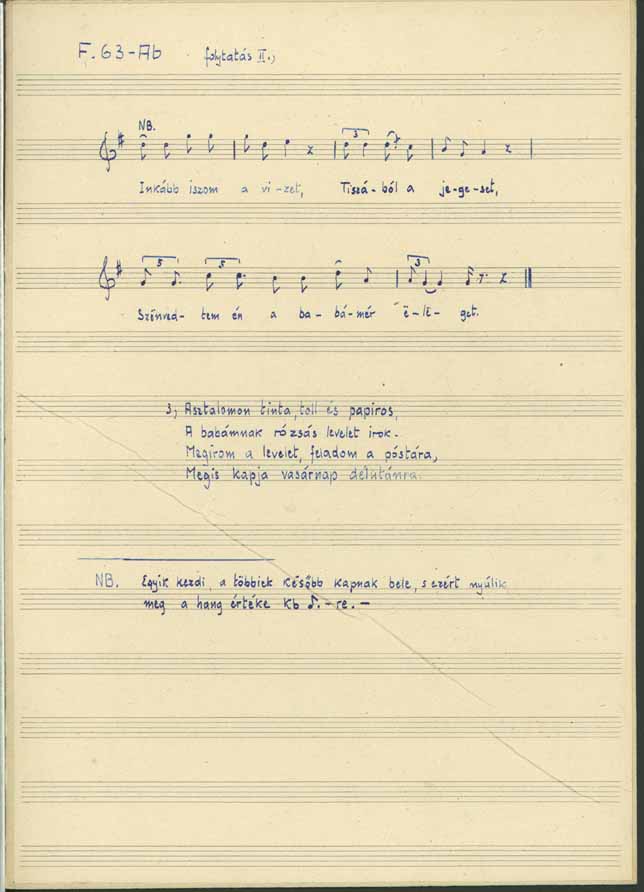 F. 63-Ab folytatás II.,
NB.
3 3
Inkább iszom a vi-zet, Tiszá-ból a je-ge-set,
5 5 3
Szenved-tem én a ba-bá-mér ë-lë-get.
3, Asztalomon tinta, toll és papiros,
A babámnak rózsás levelet irok.
Megirom a levelet, feladom a póstára,
Megis kapja vasárnap délutánra.
NB. Egyik kezdi, a többiek később kapnak bele, s ezért nyúlik
meg a hang értéke kb ♪.-re.-